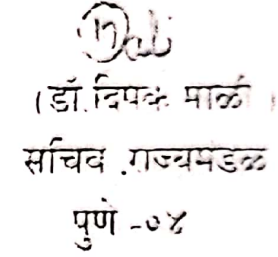 (डॉ. दिपक माळी)
सचिव राज्यमंडळ
पुणे -०४